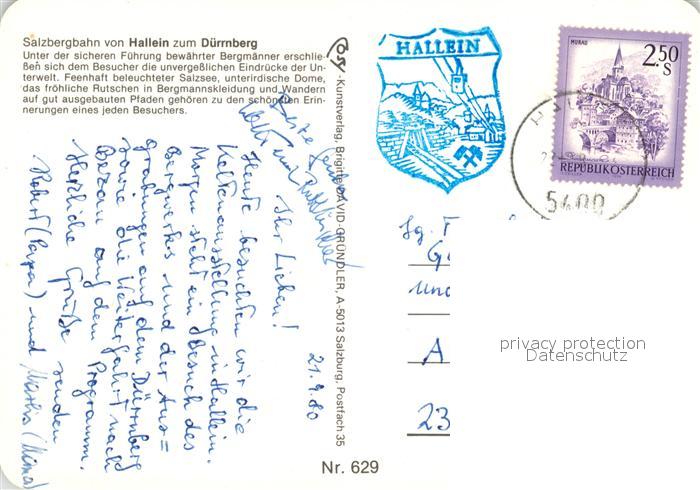 Salzbergbahn von Hallein zum Dürrnberg
Unter der sicheren Führung bewährter Bergmänner erschlie-
ßen sich dem Besucher die unvergeßlichen Eindrücke der Un-
terwelt. Feenhaft beleuchteter Salzsee, unterirdische Dome,
das fröhliche Rutschen in Bergmannskleidung und Wandern
auf gut ausgebauten Pfaden gehören zu den schönsten Erin-
nerungen eines jeden Besuchers.
-Kunstverlag, Brigitte DAVID-GRÜNDLER, A-5013 Salzburg, Postfach 35
HALLEIN
MURAU
2.50
S
REPUBLIK ÖSTERREICH
5400
21.9.80
Ihr Lieben!
Heute besuchten wir die
Keltenausstellung in Hallein.
Morgen steht ein Besuch des
Bergwerks und der Aus=
grabungen auf dem Dürrnberg
sowie die Weiterfahrt nach
auf dem Programm.
Herzliche Grüße senden
Robert (Papa) und
und
A
23
privacy protection
Datenschutz
Nr. 629